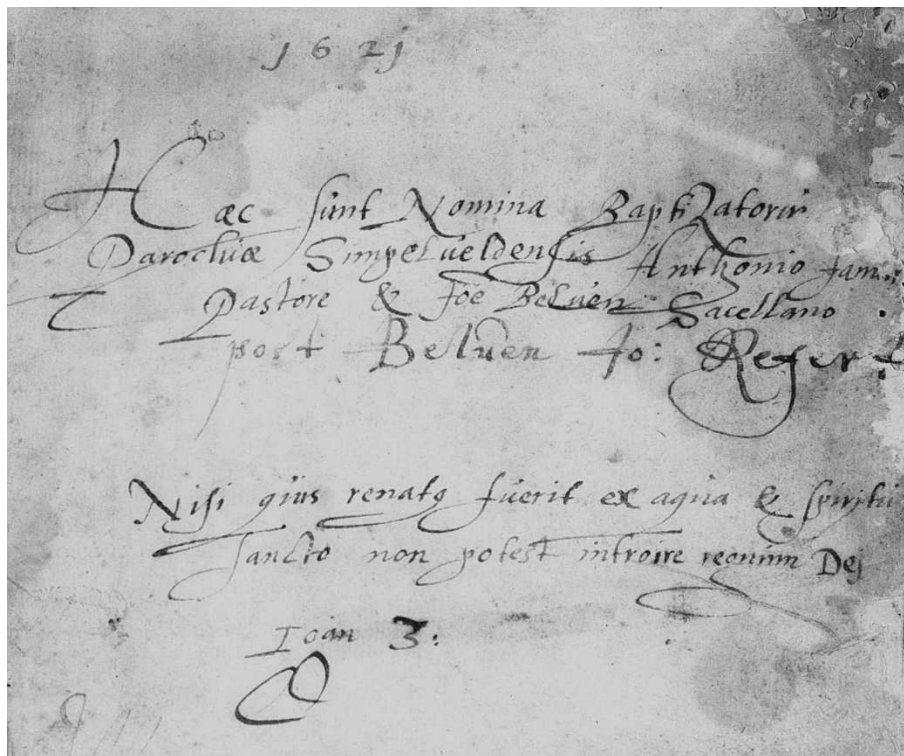 1621
Hæc sunt Nomina Baptizatorū
Parochiæ Simpelueldensis Anthonio
Pastore & Joē Beluen Sacellano
post Beluen Jo:
Nisi quis renatq fuerit ex aqua & spiritu
sancto non potest introire regnum Dej
Ioan 3.